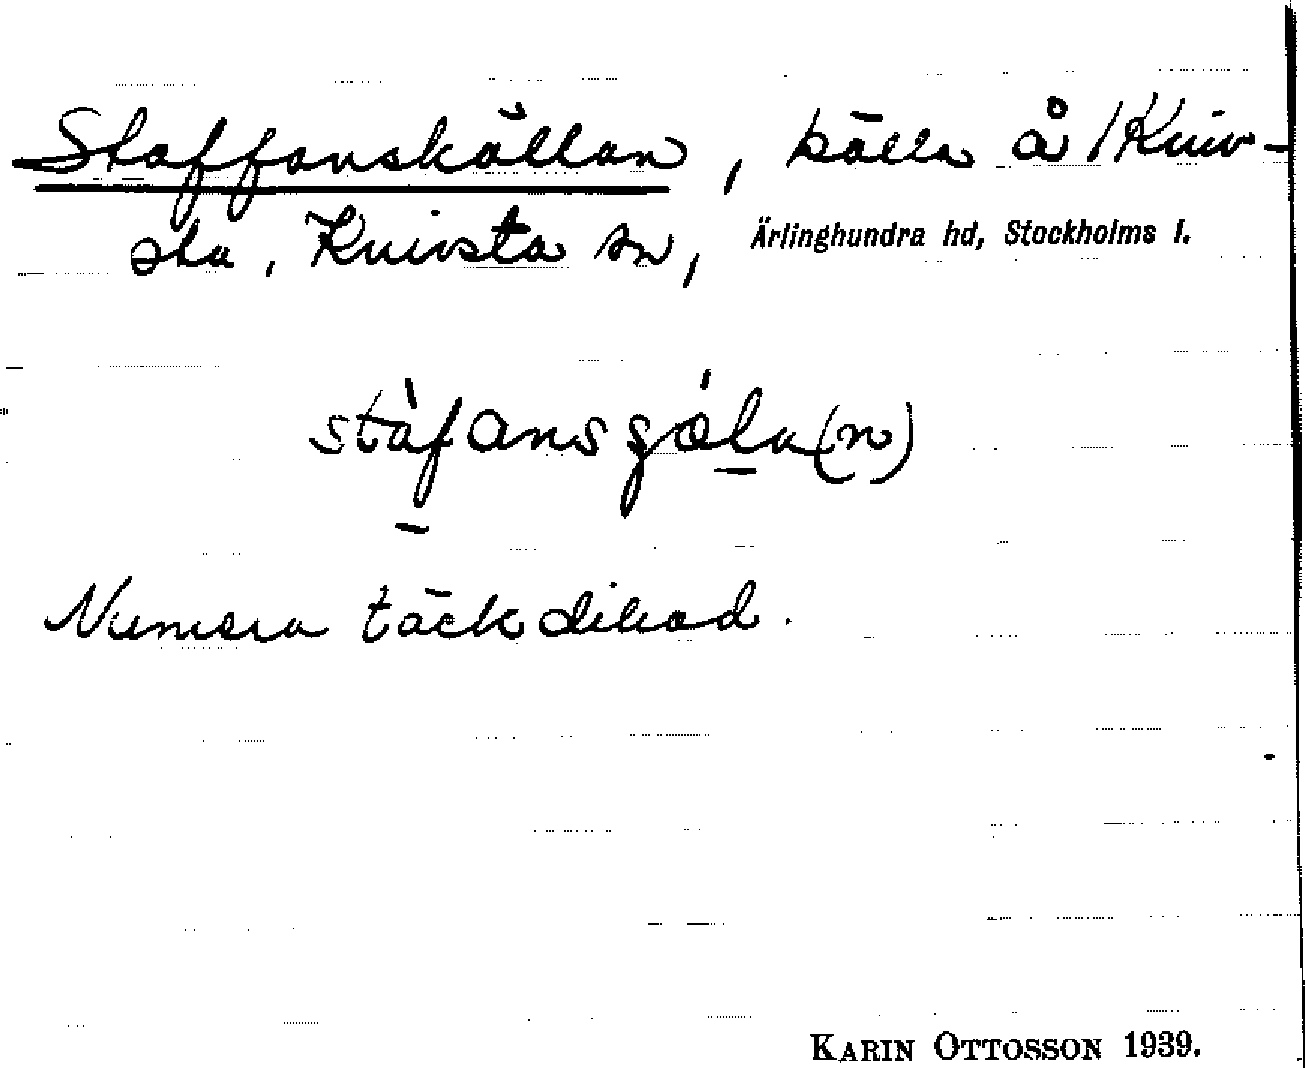 Staffanskällan, källa å Kniv-
sta, Knivsta sn, Ärlinghundra hd, Stockholms l.
stàfansgóla(n)
Numera täckdikad.
KARIN OTTOSSON 1939.